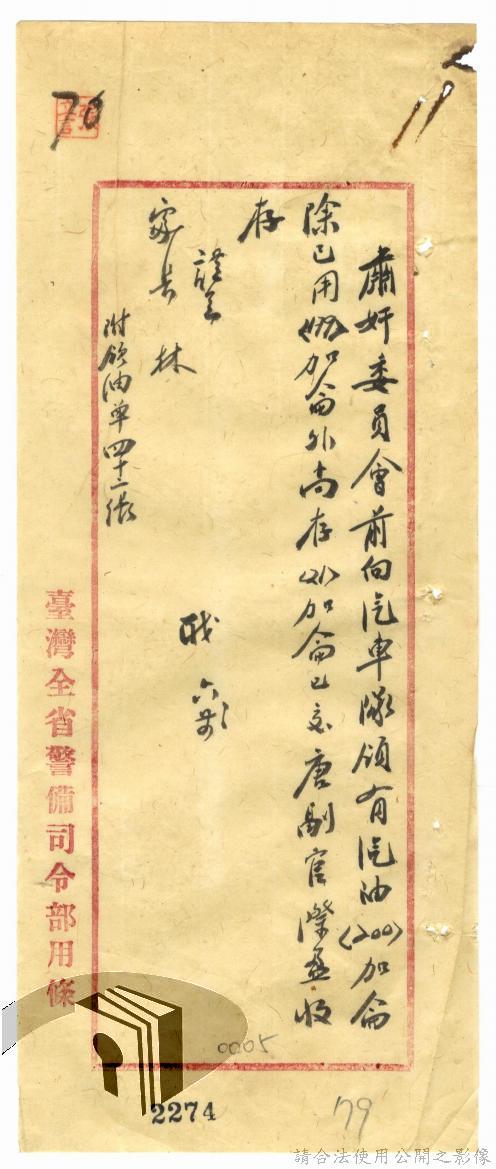 70
11
肅奸委員會前向汽車隊領有汽油〈200〉加侖
除已用〈179〉加侖外尚存〈21〉加侖已交唐副官際盈收
存
謹呈
家長 林
職
附領油單四十二張
臺灣全省警備司令部用條
0005
2274
79
請合法使用公開之影像